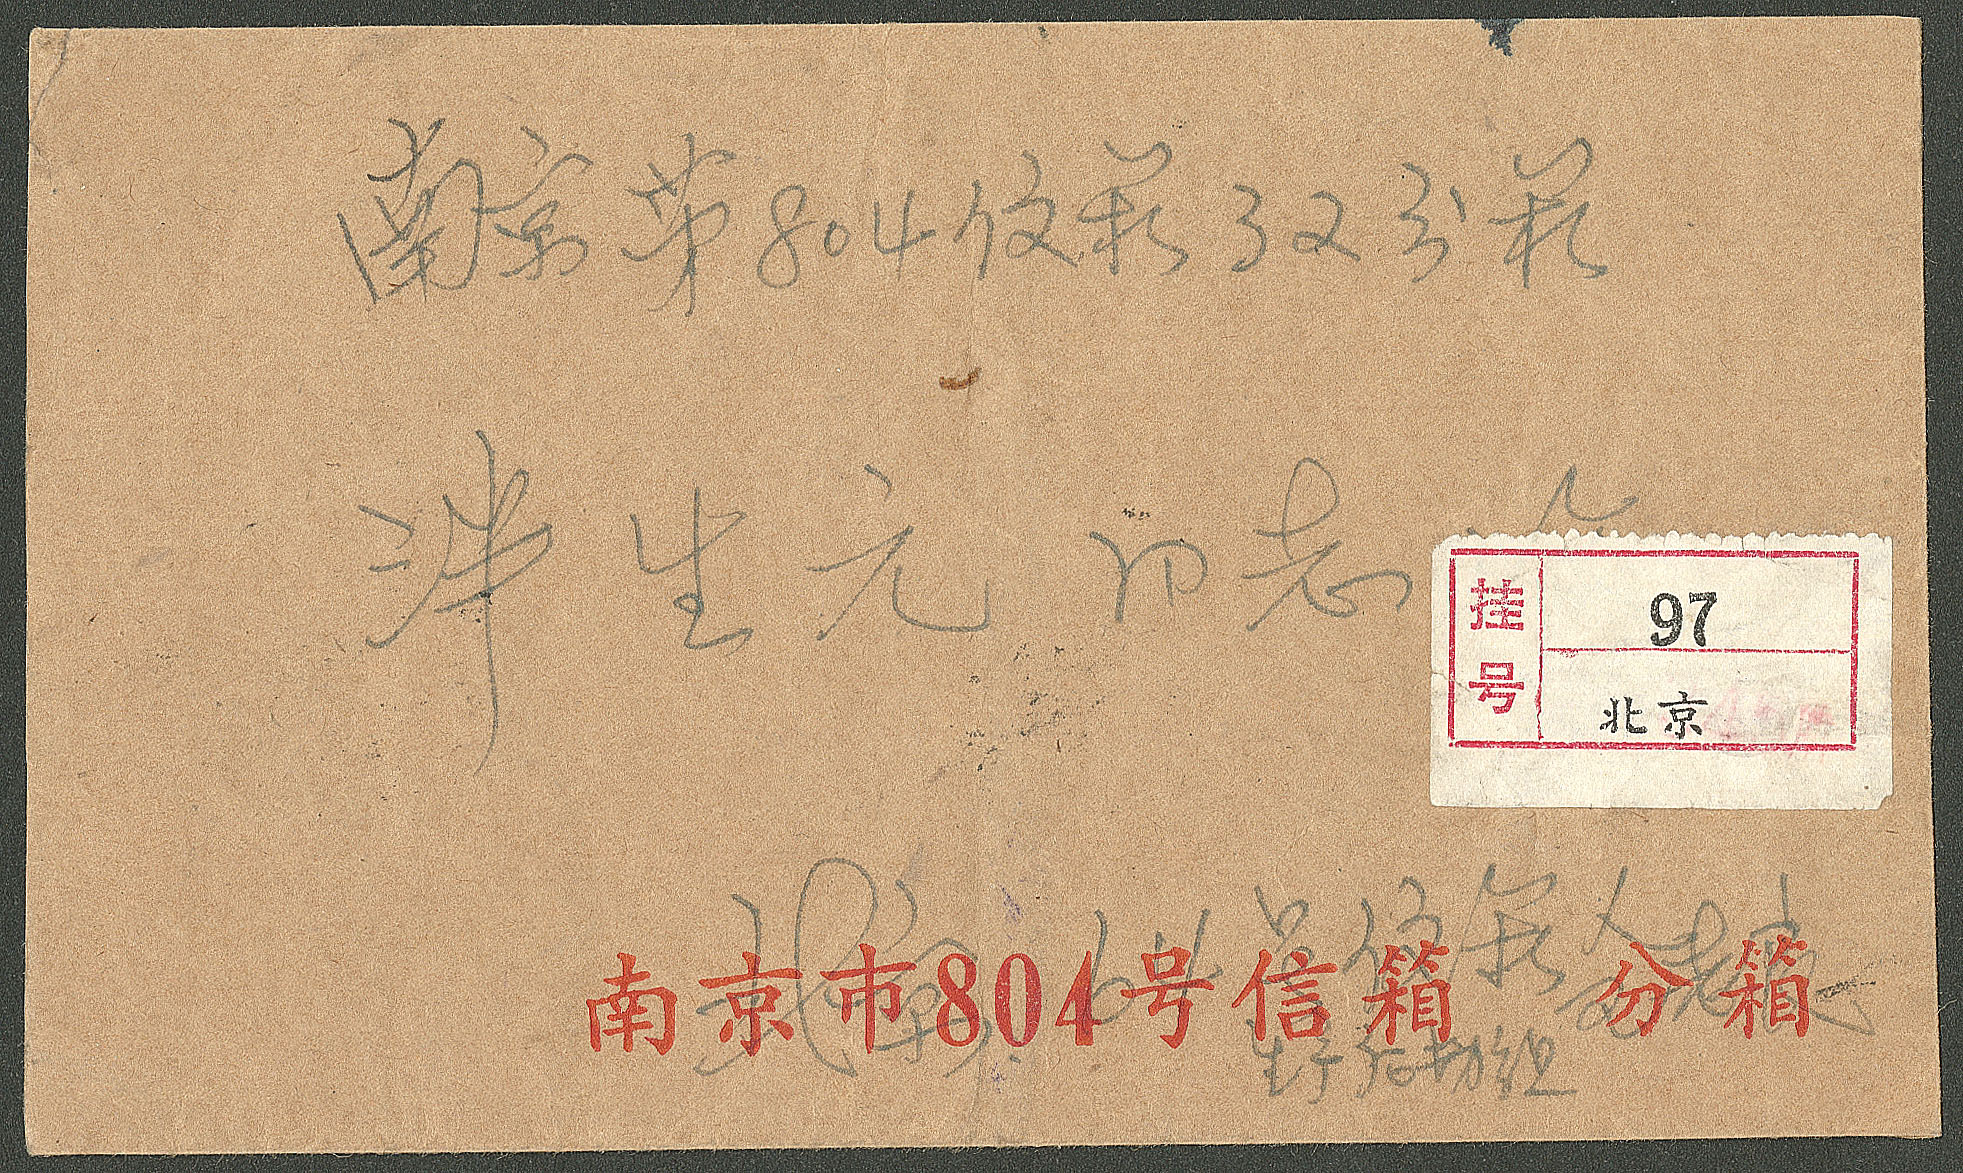 南京第804信箱32分箱
生元同志
挂号
97
北京
南京市804号信箱 分箱
北京
号信箱